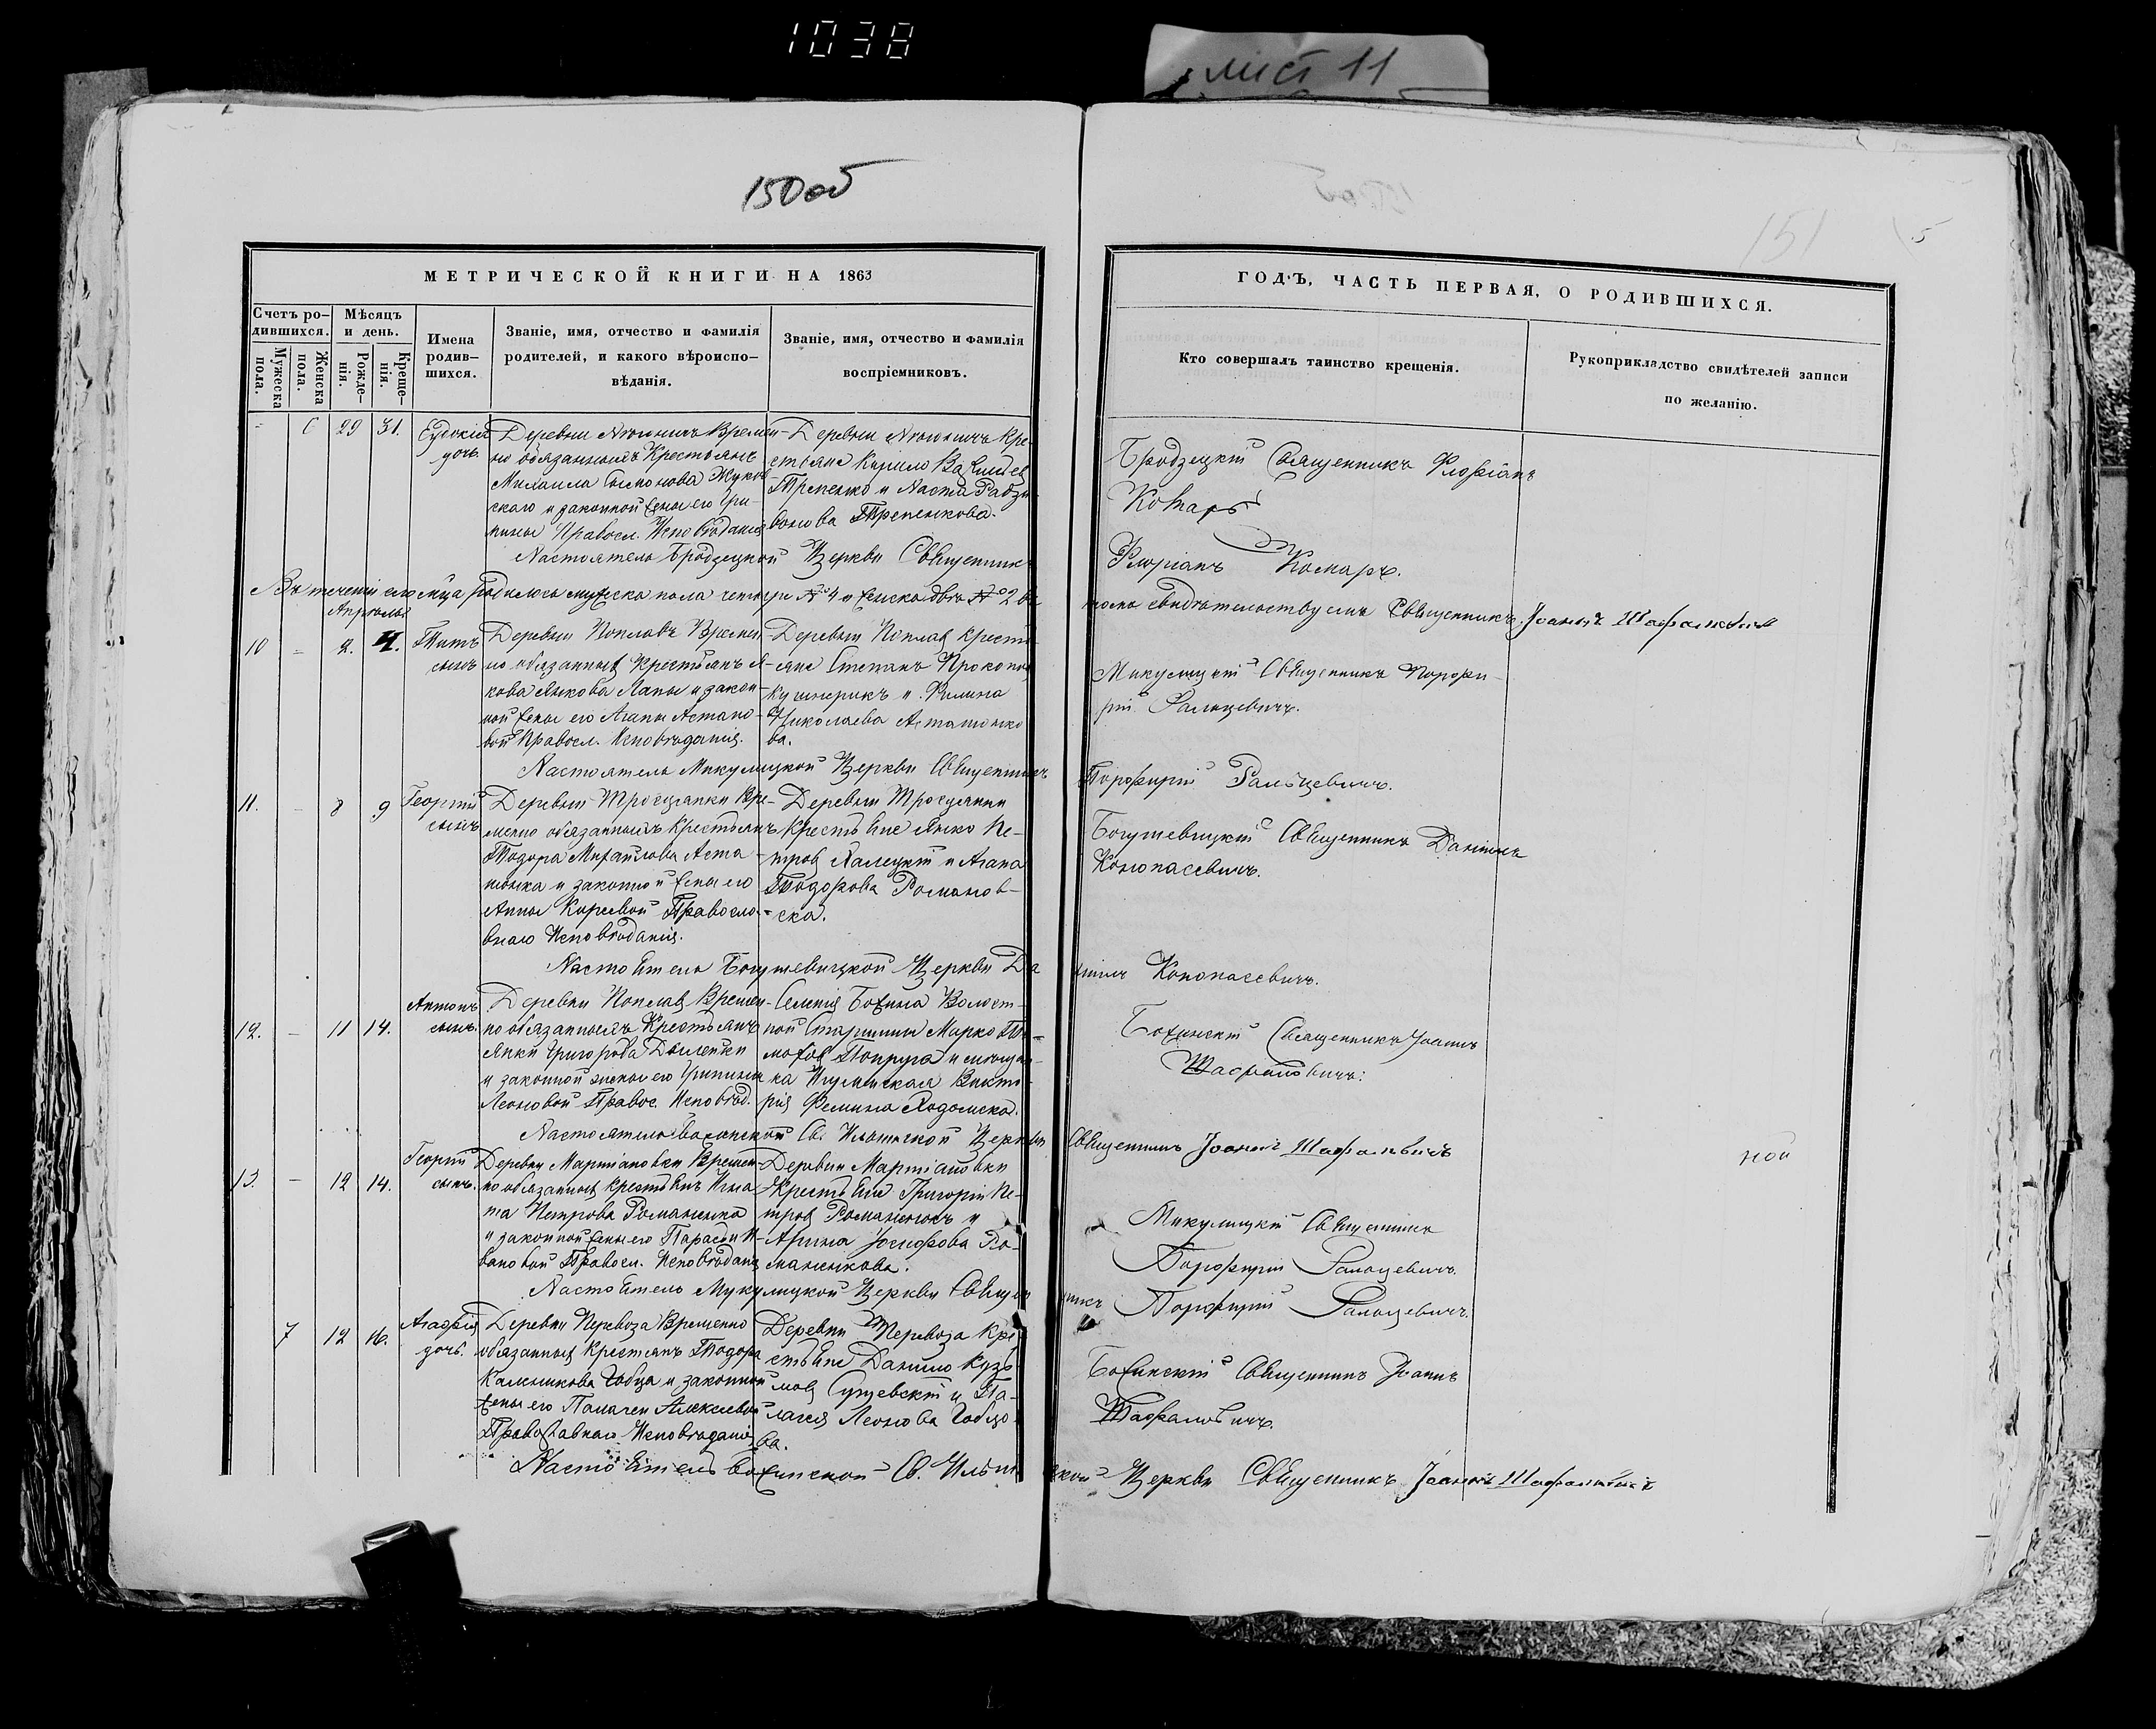 1038
лист 11
150 об
151
5
МЕТРИЧЕСКОЙ КНИГИ НА 1863
ГОДЪ, ЧАСТЬ ПЕРВАЯ, О РОДИВШИХСЯ.
Счетъ ро-
дившихся.
Мужеска
пола.
Женска
пола.
Мѣсяцъ
и день.
Рожде-
нія.
Креще-
нія.
Имена
родив-
шихся.
Званіе, имя, отчество и фамилія
родителей, и какого вѣроиспо-
вѣданія.
Званіе, имя, отчество и фамилія
воспріемниковъ.
Кто совершалъ таинство крещенія.
Рукоприкладство свидѣтелей записи
по желанію.
29 31.
дочь
Деревни Времен-
но обязанныхъ Крестьянъ
Михаила Сымонова Жуков-
скаго и законной жены его Гри-
пины Правосл. Исповѣданія
Деревни Кре-
стьяне Кирило
Трепенко и Наста Радзи-
вонова Трепенкова.
Бродзецкій Священникъ Флоріанъ
Комаръ
Настоятель Бродзецкой Церкви Священникъ Флоріанъ Комаръ.
Въ теченіи сего м-ца родилось мужеска пола четыре № 4 и женска двѣ № 2 въ
томъ свидѣтельствуемъ Священникъ Іоаннъ Шафаловичъ
Апрѣль
10 - 2. 4.
Титъ
сынъ
Деревни Поплавъ Времен-
но обязанныхъ Крестьянъ Я-
кова Янкова Лапы и закон-
ной жены его Агапы Астапо-
вой Правосл. Исповѣданія.
Деревни Поплавъ Кресть-
яне Степанъ Прокоповъ
Кушнерикъ и Филина
Николаева Асташонко
ва.
Микулицкій Священникъ Порфи-
рій Ральцевичъ.
Настоятель Микулицкой Церкви Священникъ Порфирій Ральцевичъ.
11. - 8 9
Георгій
сынъ
Деревни Тросцянки Вре-
менно обязанныхъ Крестьянъ
Тодора Михайлова Аста-
шонка и законной жены его
Анны Киреевой Правосла-
внаго Исповѣданія.
Деревни Тросцянки
Крестьяне Янко Пе-
тровъ Халецкій и Агапа
Тодорова Романов-
ска.
Богушевицкій Священникъ Даніилъ
Конопасевичъ.
Настоятель Богушевицкой Церкви Даніилъ Конопасевичъ.
12. - 11 14.
Антонъ
сынъ.
Деревни Поплавъ Времен-
но обязанныхъ Крестьянъ
Янки Григорова Дылейки
и законной жены его Грипины
Леоновой Правос. Исповѣд.
Селенія Божина Волост-
ной Старшина Марко Ти-
мофеевъ Попруга и мещан-
ка Игуменская Викто-
рія Фемина Ходомска.
Божинскій Священникъ Іоаннъ
Шафаловичъ:
Настоятель Божинской Св. Ильинской Церкви Священникъ Іоаннъ Шафаловичъ
ной
13. - 12 14.
Георгій
сынъ.
Деревни Мартіановки Времен-
но обязанныхъ Крестьянъ Игна-
та Петрова Романенка
и законной жены его Параски И-
вановой Правосл. Исповѣданія
Деревни Мартіановки
Крестьяне Григорій Пе-
тровъ Романенокъ и
Арина Іосифова Ро-
маненкова.
Микулицкій Священникъ
Порфирій Ральцевичъ.
Настоятель Микулицкой Церкви Священникъ Порфирій Ральцевичъ.
7 12 16.
Агафія
дочь.
Деревни Перевоза Временно
обязанныхъ Крестьянъ Тодора
Калиникова Говца и законной
жены его Палагеи Алексеевой
Православнаго Исповѣданія
Деревни Перевоза Кре-
стьяне Данило Кузь-
мовъ Сущевскій и Па-
лагея Леонова Говцо
ва.
Божинскій Священникъ Іоаннъ
Шафаловичъ.
Настоятель Божинской Св. Ильинской Церкви Священникъ Іоаннъ Шафаловичъ